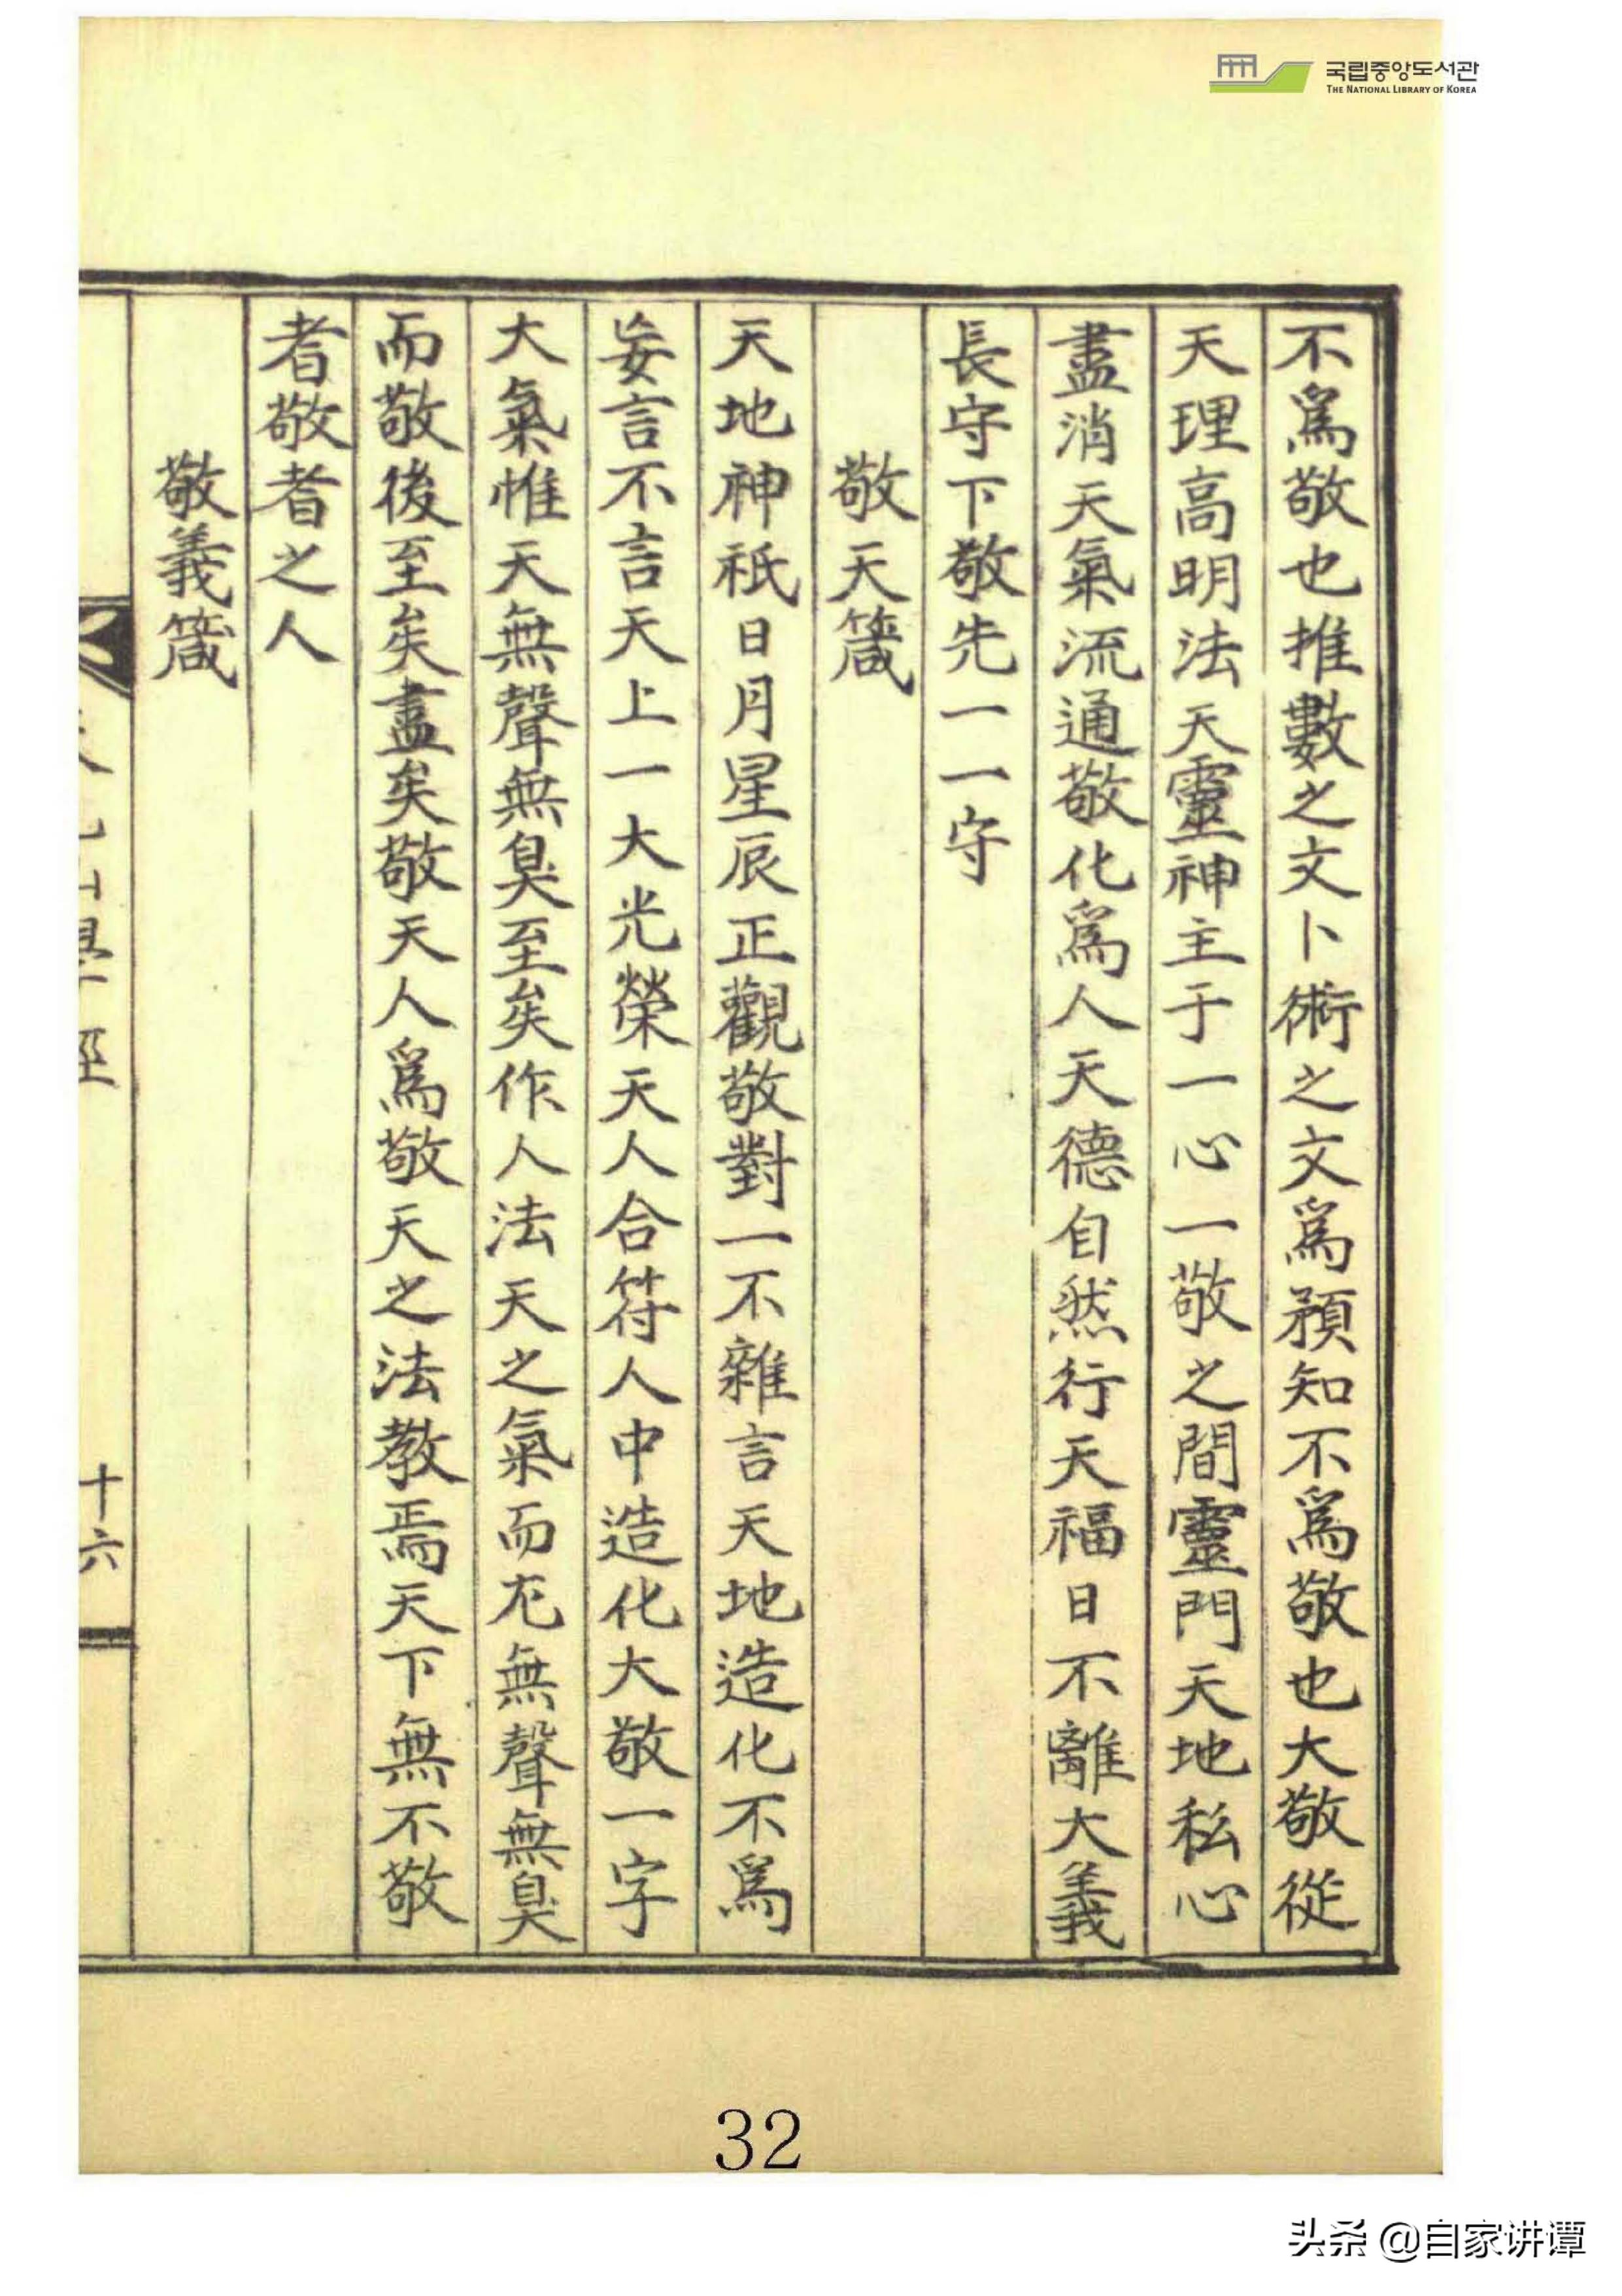 국립중앙도서관
THE NATIONAL LIBRARY OF KOREA
不爲敬也推數之文卜術之文爲預知不爲敬也大敬從
天理高明法天靈神主于一心一敬之間靈門天地私心
盡消天氣流通敬化爲人天德自然行天福日不離大義
長守下敬先一一守
敬天箴
天地神祇日月星辰正觀敬對一不雜言天地造化不爲
妄言不言天上一大光榮天人合符人中造化大敬一字
大氣惟天無聲無臭至矣作人法天之氣而充無聲無臭
而敬後至矣盡矣敬天人爲敬天之法教焉天下無不敬
者敬者之人
敬義箴
十六
32
头条 @自家讲谭